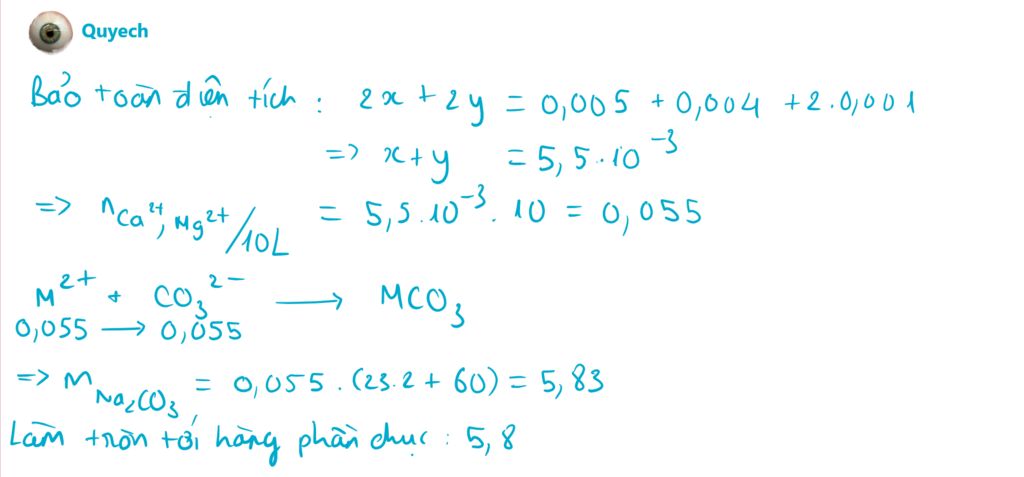 Quyech
Bảo toàn điện tích : 2x + 2y = 0,005 + 0,004 + 2.0,001
=> x + y = 5,5.10⁻³
=> nCa²⁺, Mg²⁺/10L = 5,5.10⁻³.10 = 0,055
M²⁺ + CO₃²⁻ ⟶ MCO₃
0,055 ⟶ 0,055
=> mNa₂CO₃ = 0,055.(23.2 + 60) = 5,83
Làm tròn tới hàng phần chục : 5,8